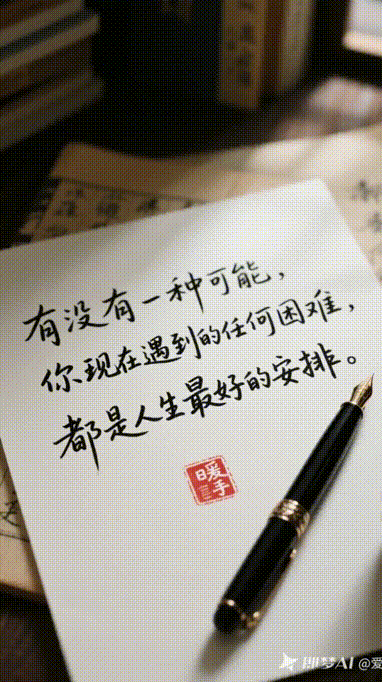 有没有一种可能，
你现在遇到的任何困难，
都是人生最好的安排。
暖手
即梦AI @爱